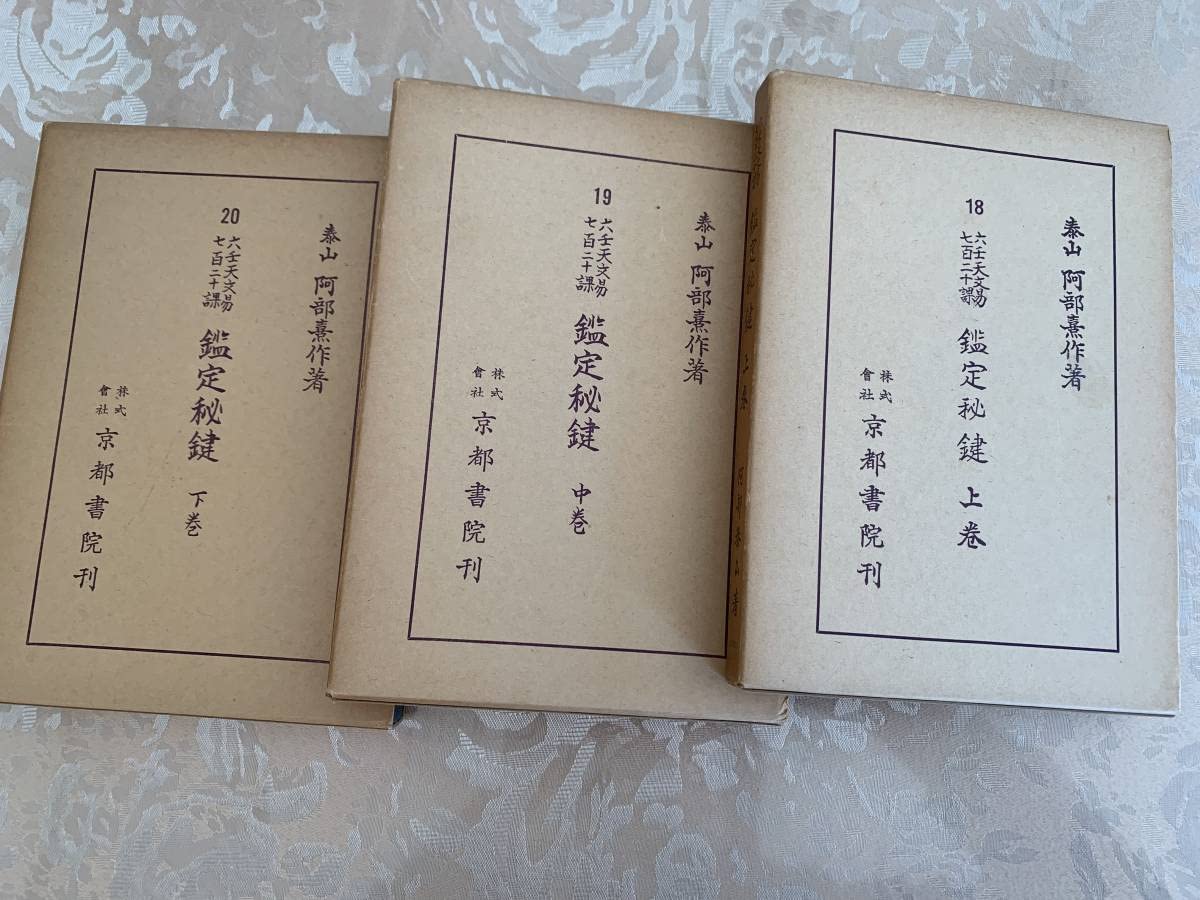 泰山 阿部熹作著
18
六壬天文易
七百二十課
鑑定秘鍵 上巻
株式
會社
京都書院刊
鑑定秘鍵 上巻 阿部泰山著
泰山 阿部熹作著
19
六壬天文易
七百二十課
鑑定秘鍵 中巻
株式
會社
京都書院刊
泰山 阿部熹作著
20
六壬天文易
七百二十課
鑑定秘鍵 下巻
株式
會社
京都書院刊